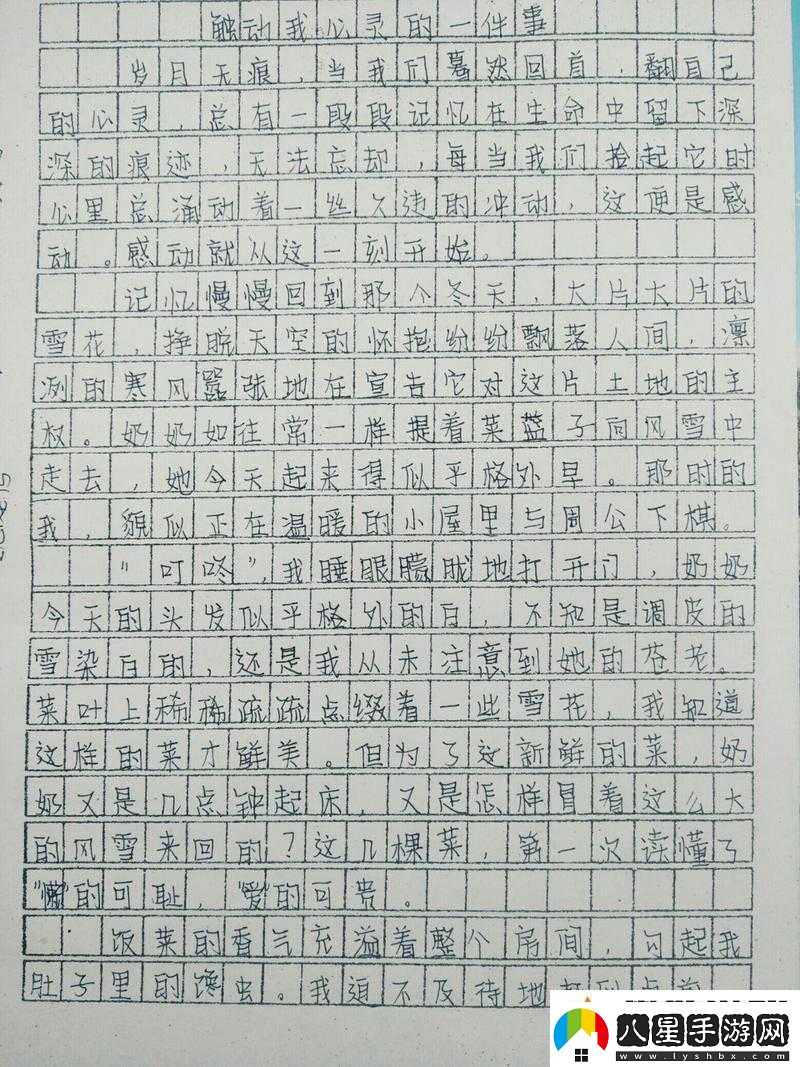 触动我心灵的一件事
岁月无痕，当我们蓦然回首，翻自己
的心灵，总有一段段记忆在生命中留下深
深的痕迹，无法忘却，每当我们捡起它时
心里总涌动着一丝久违的冲动，这便是感
动。感动就从这一刻开始。
记忆慢慢回到那个冬天，大片大片的
雪花，挣脱天空的怀抱纷纷飘落人间，凛
冽的寒风嚣张地在宣告它对这片土地的主
权。奶奶如往常一样提着菜篮子向风雪中
走去，她今天起来得似乎格外早。那时的
我，貌似正在温暖的小屋里与周公下棋。
“叮咚”，我睡眼朦胧地打开门，奶奶
今天的头发似乎格外的白，不知是调皮的
雪染白的，还是我从未注意到她的苍老。
菜叶上稀稀疏疏点缀着一些雪花，我知道
这样的菜才鲜美。但为了这新鲜的菜，奶
奶又是几点钟起床，又是怎样冒着这么大
的风雪来回的？这几棵菜，第一次读懂了
“懒”的可耻，“爱”的可贵。
饭菜的香气充溢着整个房间，勾起我
肚子里的馋虫。我迫不及待地
八星手游网
www.lyshbx.com